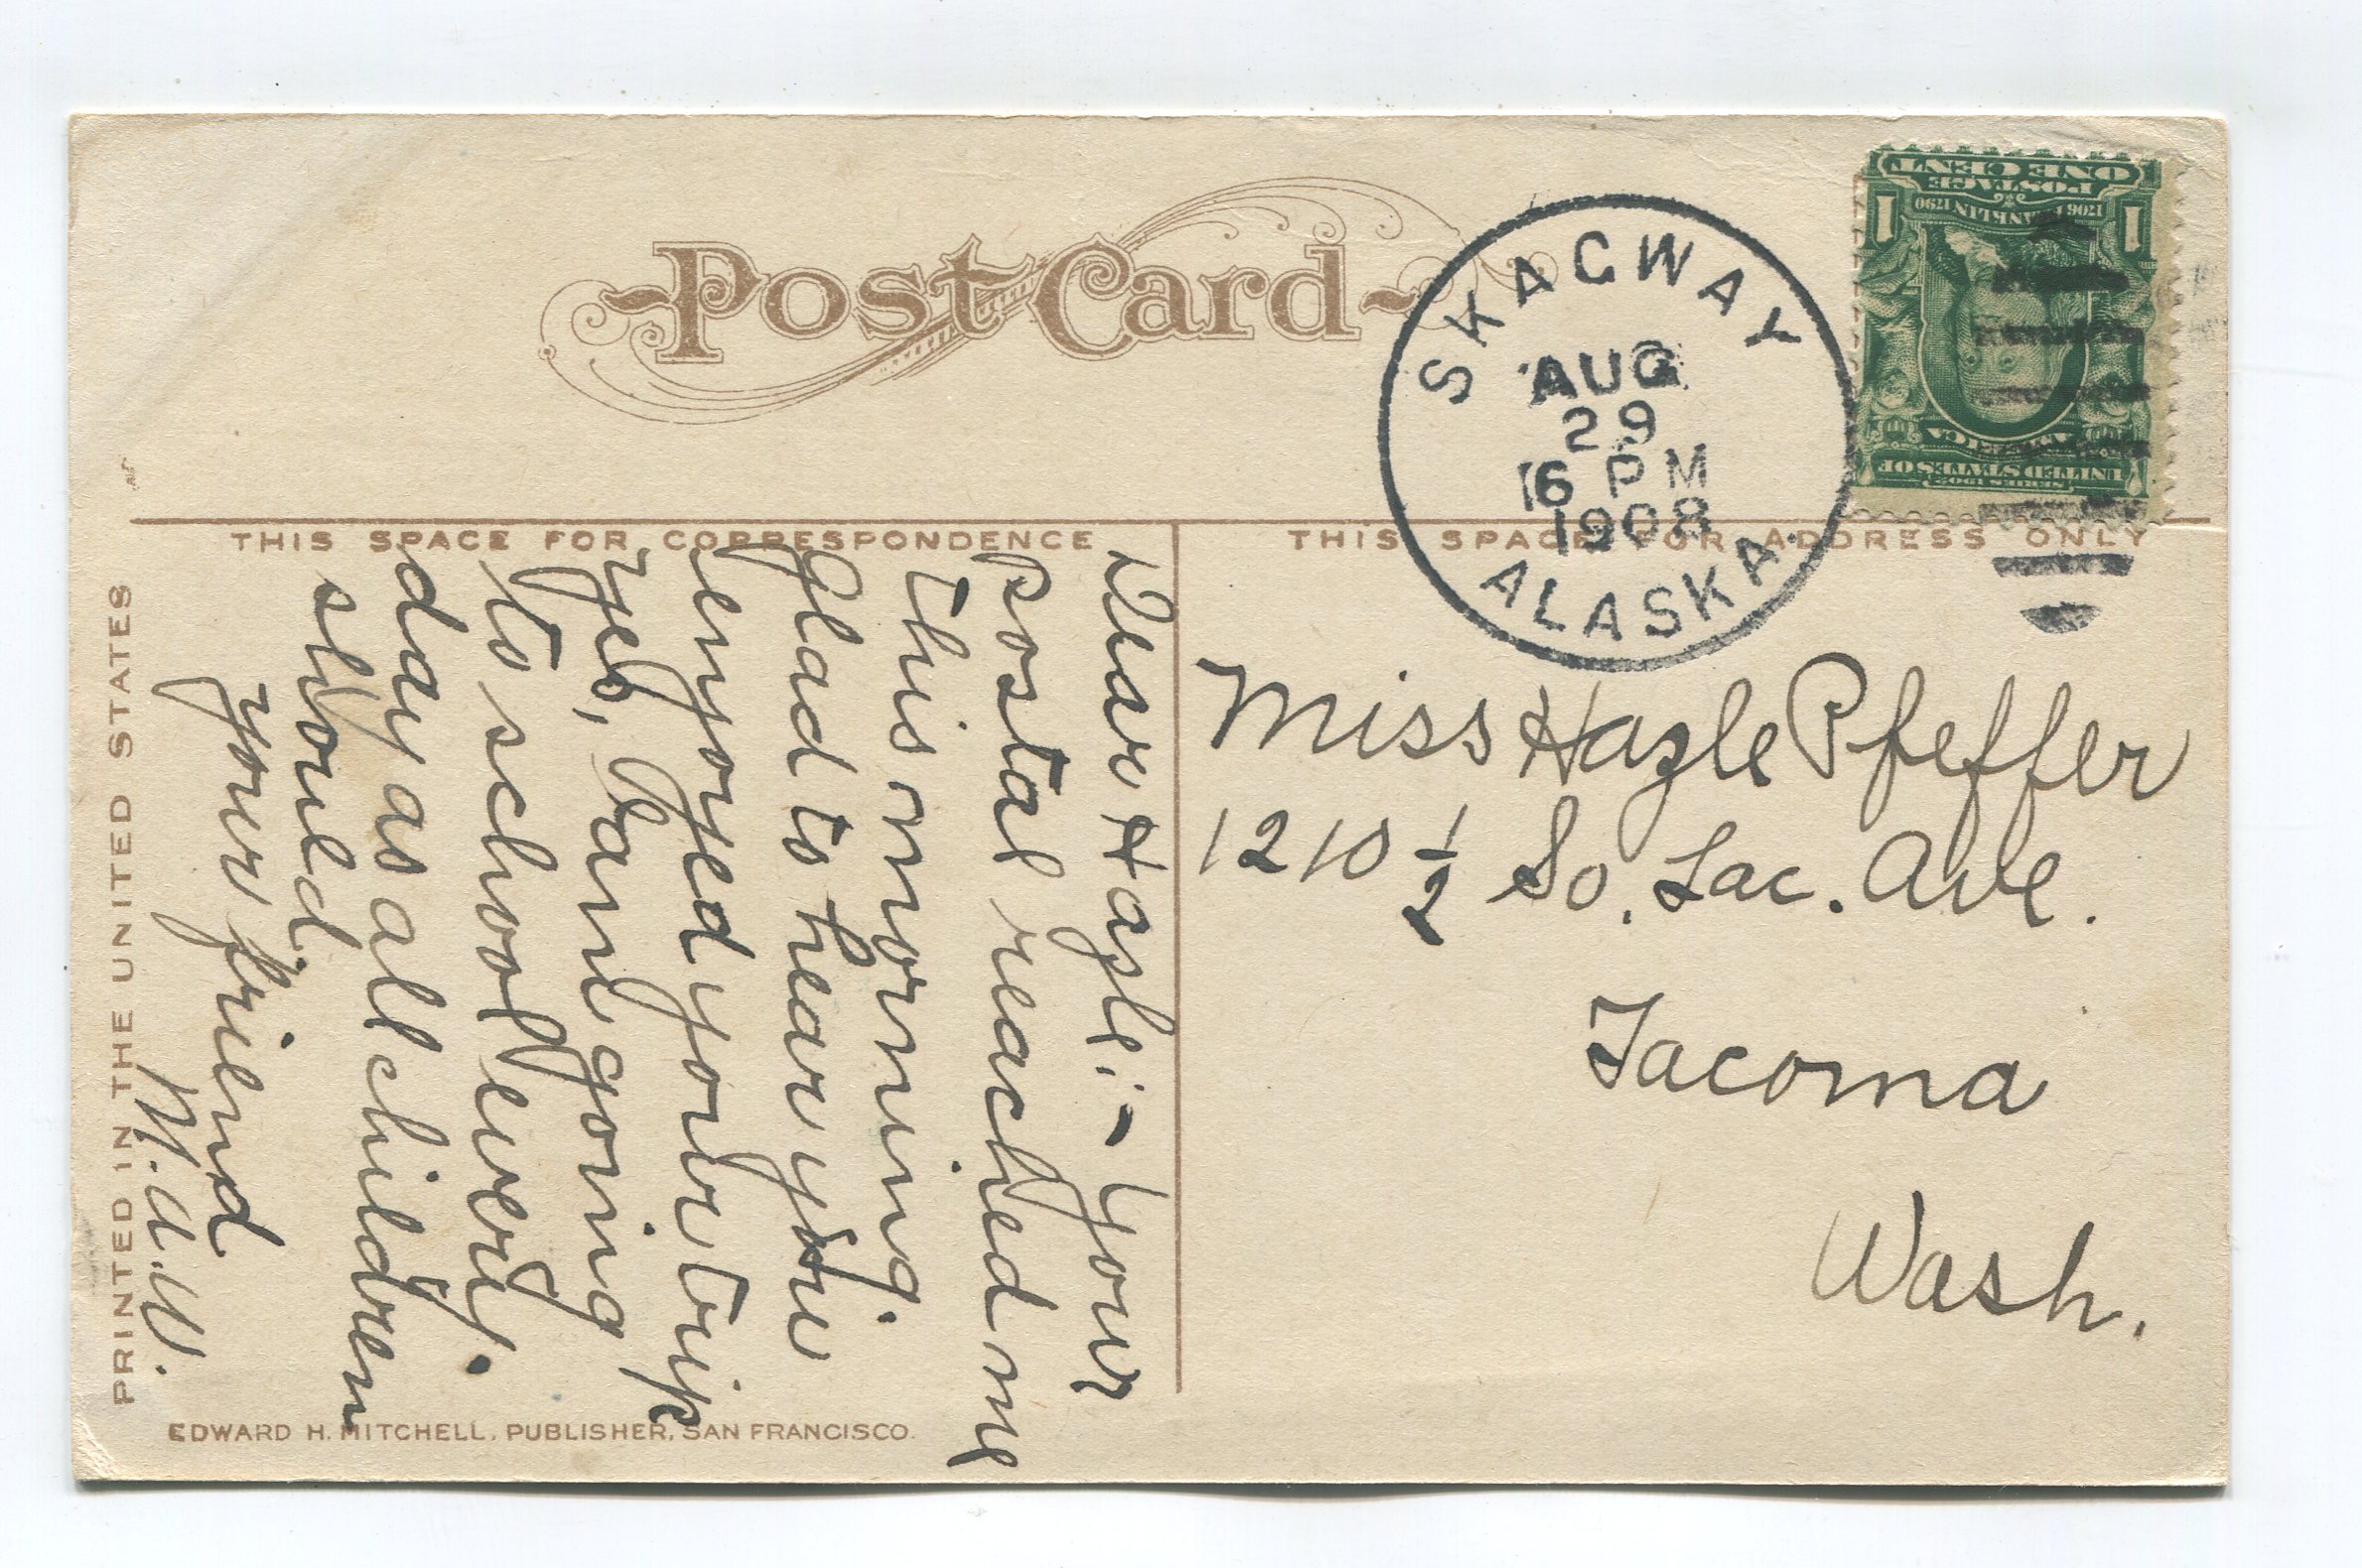 Post Card
SKAGWAY
AUG
29
6 PM
1908
ALASKA
ONE CENT
POSTAGE
1706 FRANKLIN 1790
1 1
AMERICA
UNITED STATES OF
SERIES 1902
THIS SPACE FOR CORRESPONDENCE
THIS SPACE FOR ADDRESS ONLY
Dear Hazle:- Your
postal reached me
this morning.
Glad to hear you
enjoyed your trip
yes, I am going
to school every
day as all children
should.
your friend
M.A.W.
Miss Hazle Pfeffer
1210 1/2 So. Tac. Ave.
Tacoma
Wash.
PRINTED IN THE UNITED STATES
EDWARD H. MITCHELL, PUBLISHER, SAN FRANCISCO.